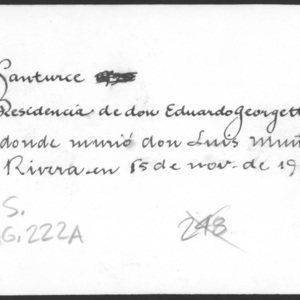 Santurce
Residencia de don Eduardo Georgett
donde murió don Luis Muñ
Rivera en 15 de nov. de 19
S.
G. 222A
248